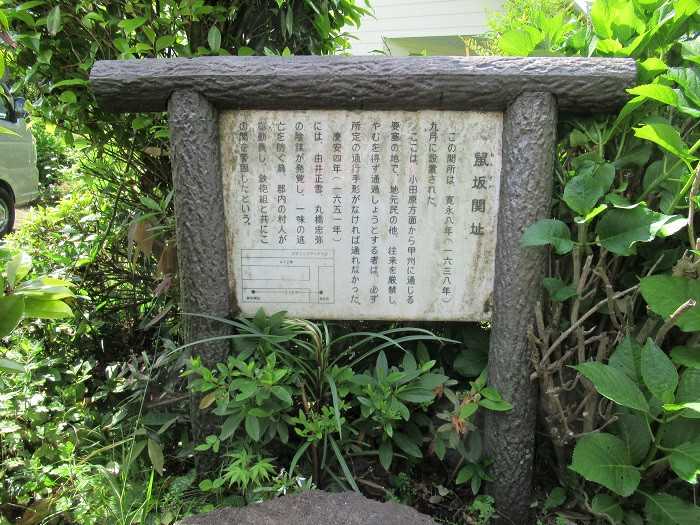 鼠坂関址
この関所は、寛永八年(一六三八年)
九月に設置された。
ここは、小田原方面から甲州に通じる
要塞の地で、地元民の他、往来を厳禁し、
やむを得ず通過しようとする者は、必ず
所定の通行手形がなければ通れなかった。
慶安四年(一六五一年)
には、由井正雪、丸橋忠弥
の陰謀が発覚し、一味の逃
亡を防ぐ為、郡内の村人が
総動員し、鉄砲組と共にこ
の関を警固したという。